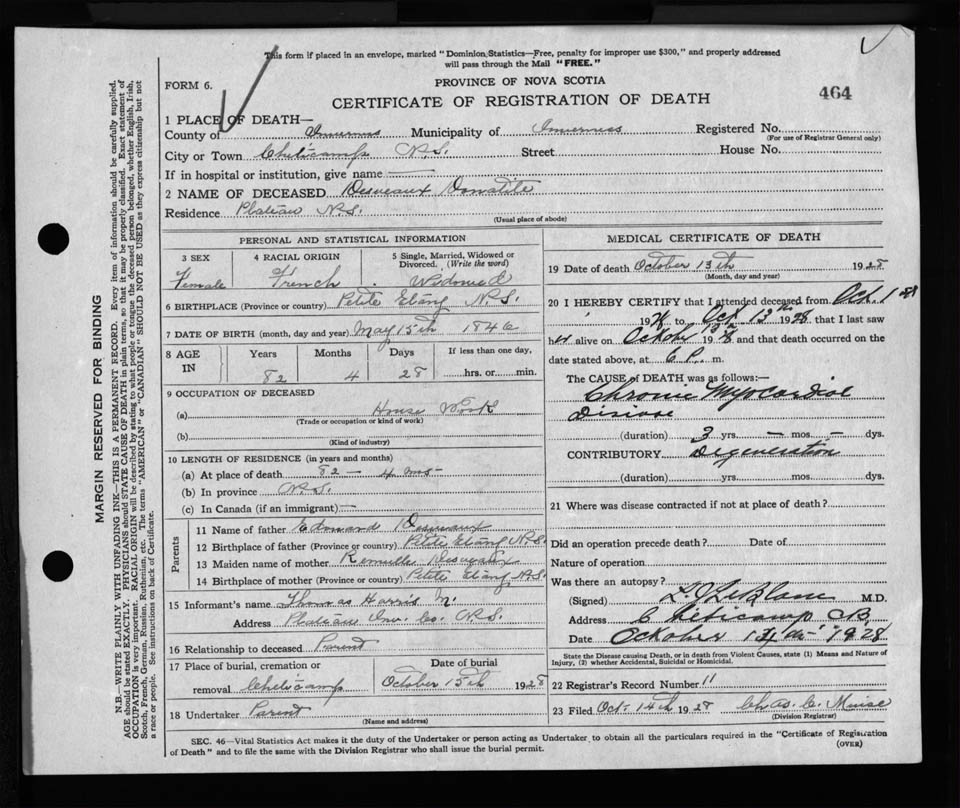 This form if placed in an envelope, marked "Dominion Statistics—Free, penalty for improper use $300," and properly addressed
will pass through the Mail "FREE."
FORM 6.
PROVINCE OF NOVA SCOTIA
CERTIFICATE OF REGISTRATION OF DEATH
464
1 PLACE OF DEATH—
County of Inverness Municipality of Inverness Registered No.
(For use of Registrar General only)
City or Town Cheticamp N.S. Street House No.
If in hospital or institution, give name —
2 NAME OF DECEASED Desveaux Donatile
Residence Plateau N.S.
(Usual place of abode)
PERSONAL AND STATISTICAL INFORMATION
3 SEX 4 RACIAL ORIGIN 5 Single, Married, Widowed or Divorced. (Write the word)
Female French Widowed
6 BIRTHPLACE (Province or country) Petite Etang N.S.
7 DATE OF BIRTH (month, day and year) May 15th 1846
8 AGE IN Years Months Days If less than one day,
82 4 28 hrs. or min.
9 OCCUPATION OF DECEASED
(a) House Work
(Trade or occupation or kind of work)
(b)
(Kind of industry)
10 LENGTH OF RESIDENCE (in years and months)
(a) At place of death 82 — 4 mos—
(b) In province N.S.
(c) In Canada (if an immigrant) —
Parents
11 Name of father Edmond Desveaux
12 Birthplace of father (Province or country) Petite Etang N.S.
13 Maiden name of mother Desveaux
14 Birthplace of mother (Province or country) Petite Etang N.S
15 Informant's name Thomas Harris
Address Plateau Inv. Co. N.S.
16 Relationship to deceased Parent
17 Place of burial, cremation or removal Cheticamp
Date of burial
October 15th 1928
18 Undertaker Parent
(Name and address)
MEDICAL CERTIFICATE OF DEATH
19 Date of death October 13th 1928
(Month, day and year)
20 I HEREBY CERTIFY that I attended deceased from Oct 1
1928 to Oct 13th 1928 that I last saw
h alive on October 13th 1928 and that death occurred on the
date stated above, at 6 P. m.
The CAUSE of DEATH was as follows:—
Chronic Myocardial
Disease
(duration) 3 yrs. — mos. — dys.
CONTRIBUTORY Degeneration
(duration) yrs. mos. dys.
21 Where was disease contracted if not at place of death?
Did an operation precede death? Date of
Nature of operation
Was there an autopsy?
(Signed) LeBlanc M.D.
Address Cheticamp CB.
Date October 1928
State the Disease causing Death, or in death from Violent Causes, state (1) Means and Nature of
Injury, (2) whether Accidental, Suicidal or Homicidal.
22 Registrar's Record Number 11
23 Filed Oct. 14th 1928 Chas. C.
(Division Registrar)
SEC. 46—Vital Statistics Act makes it the duty of the Undertaker or person acting as Undertaker to obtain all the particulars required in the "Certificate of Registration
of Death" and to file the same with the Division Registrar who shall issue the burial permit.
(OVER)
MARGIN RESERVED FOR BINDING
N.B.—WRITE PLAINLY WITH UNFADING INK—THIS IS A PERMANENT RECORD. Every item of information should be carefully supplied.
AGE should be stated EXACTLY. PHYSICIANS should STATE CAUSE OF DEATH in plain terms, so that it may be properly classified. Exact statement of
OCCUPATION is very important. RACIAL ORIGIN will be described by stating to what people or tongue the deceased person belonged, whether English, Irish,
Scotch, French, German, Russian, Ruthenian, etc. The terms "AMERICAN" or "CANADIAN" SHOULD NOT BE USED as they express citizenship but not
a race or people. See instructions on back of Certificate.